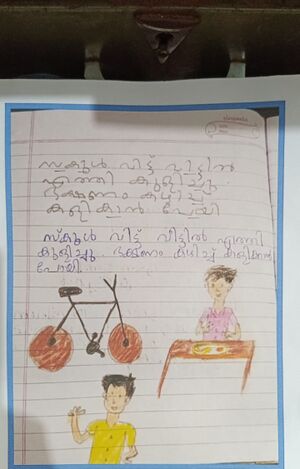 സ്കൂൾ വിട്ട് വീട്ടിൽ
എത്തി കുളിച്ചു
ഭക്ഷണം കഴിച്ച്
കളിക്കാൻ പോയി
സ്കൂൾ വിട്ട് വീട്ടിൽ എത്തി
കുളിച്ചു ഭക്ഷണം കഴിച്ച് കളിക്കാൻ
പോയി.